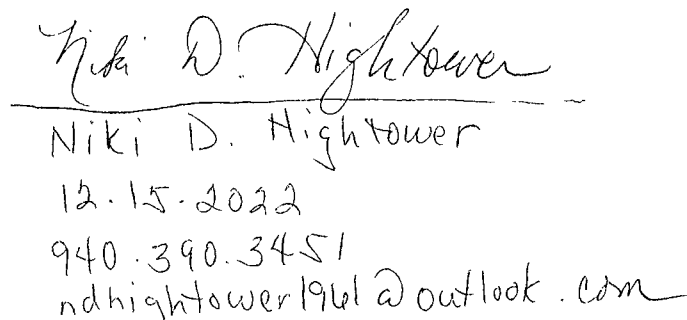 Niki D. Hightower
Niki D. Hightower
12.15.2022
940.390.3451
ndhightower1961@outlook.com